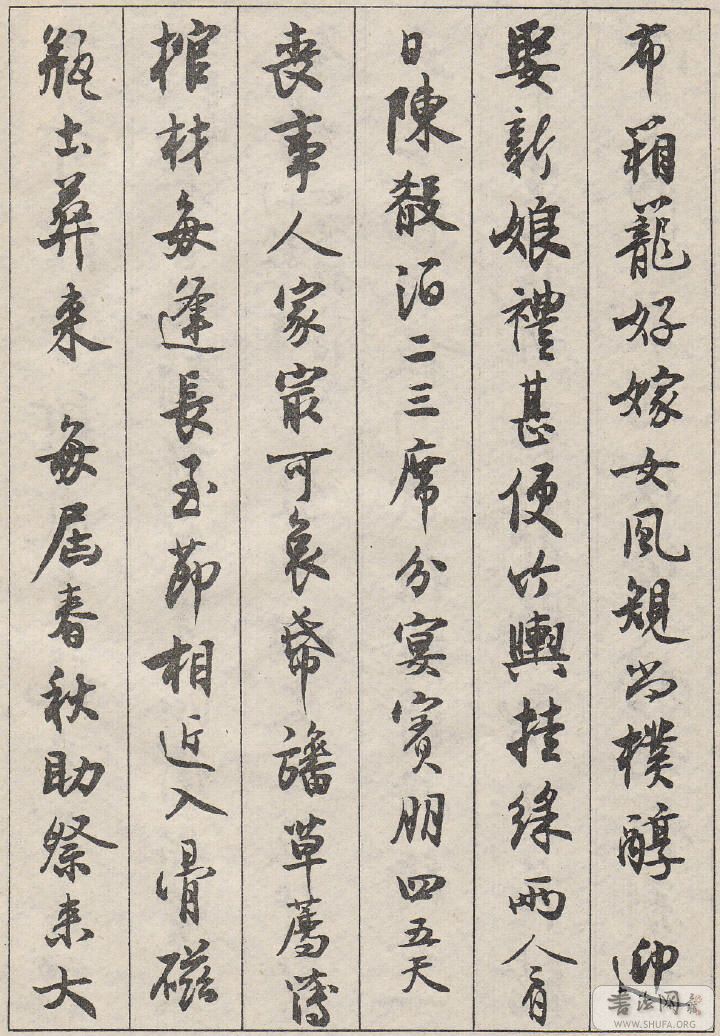 布箱籠好嫁女風規尚樸醇 迎
娶新娘禮甚便竹輿挂綵兩人肩
日陳殽酒二三席分宴賓朋四五天
喪事人家㝡可哀草薦薄
棺材每逢長至節相近入骨磁
瓶土葬来 每屆春秋助祭来大
書法网
WWW.SHUFA.ORG